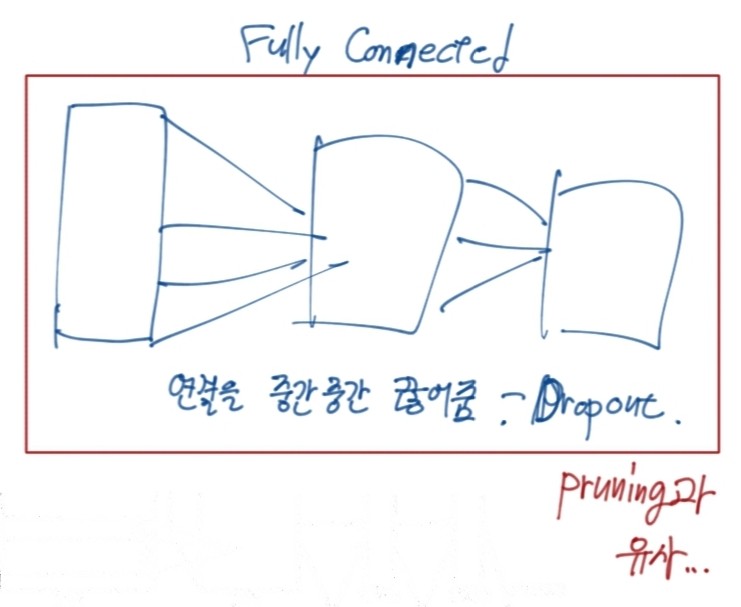 Fully Connected
연결을 중간중간 끊어줌 :- Dropout.
pruning과
유사...